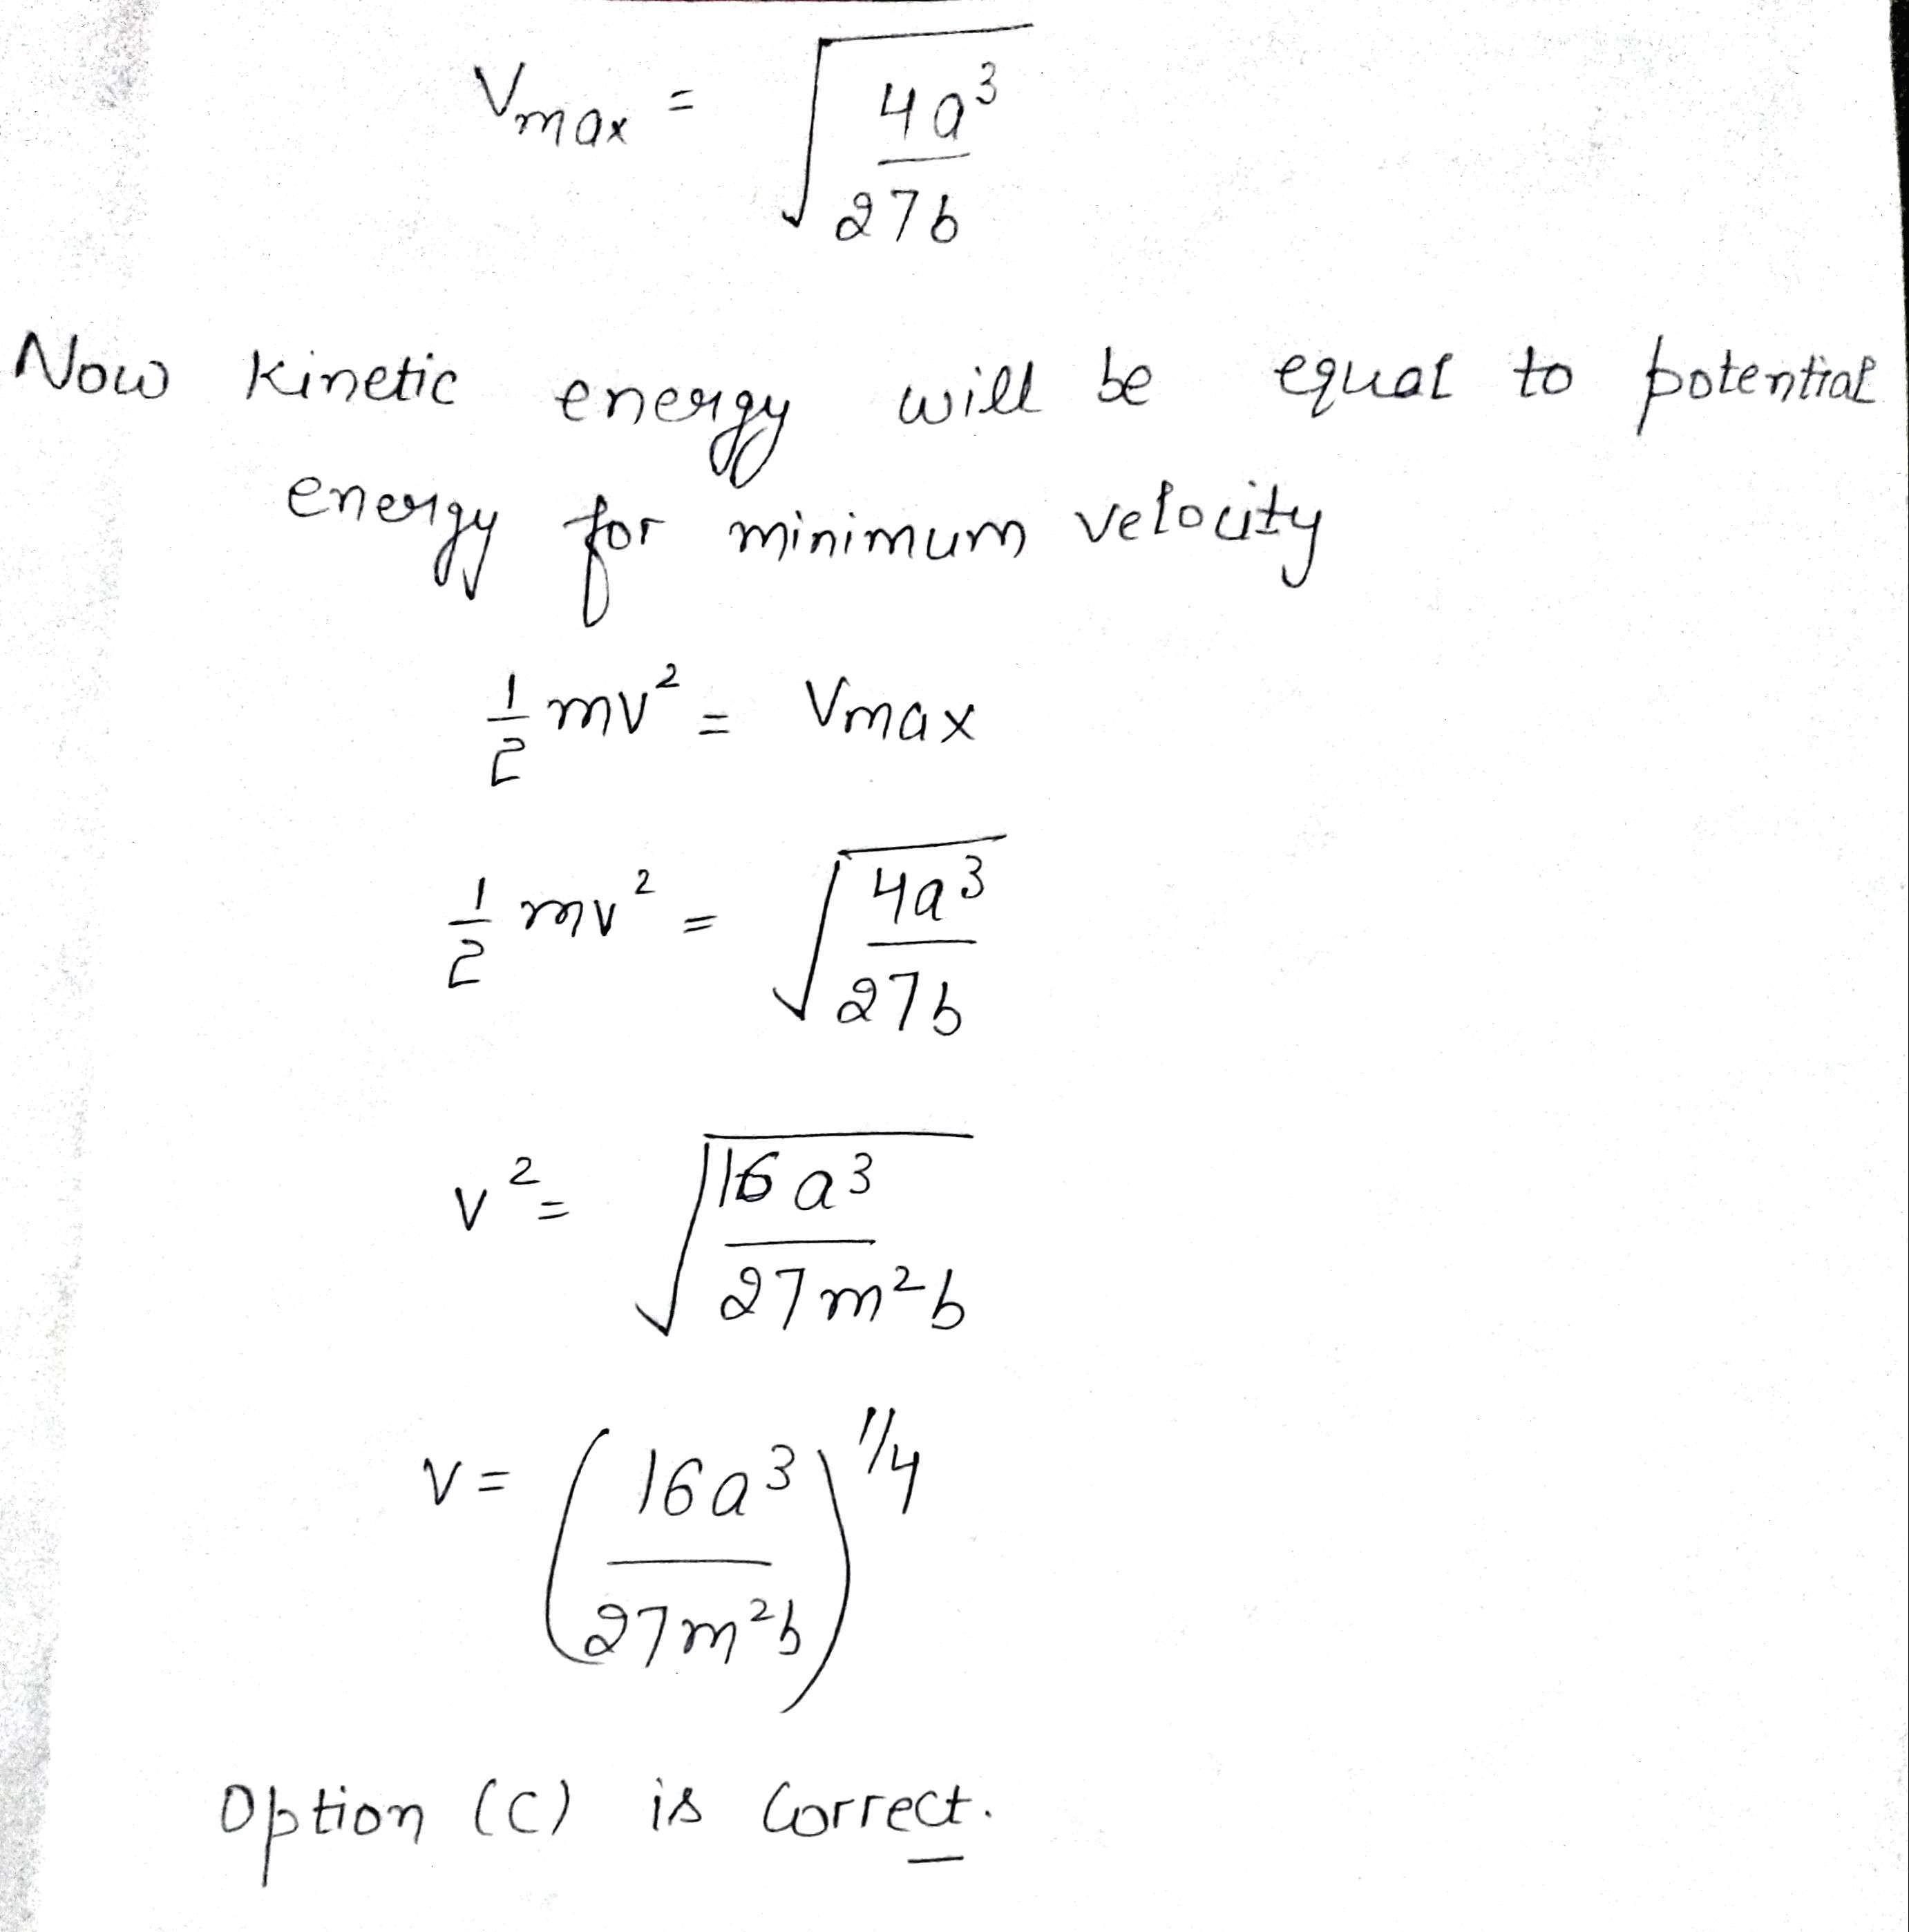 Vmax = √(4a³/27b)
Now kinetic energy will be equal to potential
energy for minimum velocity
1/2 mv² = Vmax
1/2 mv² = √(4a³/27b)
v² = √(16a³/27m²b)
v = (16a³/27m²b)^1/4
Option (C) is Correct.